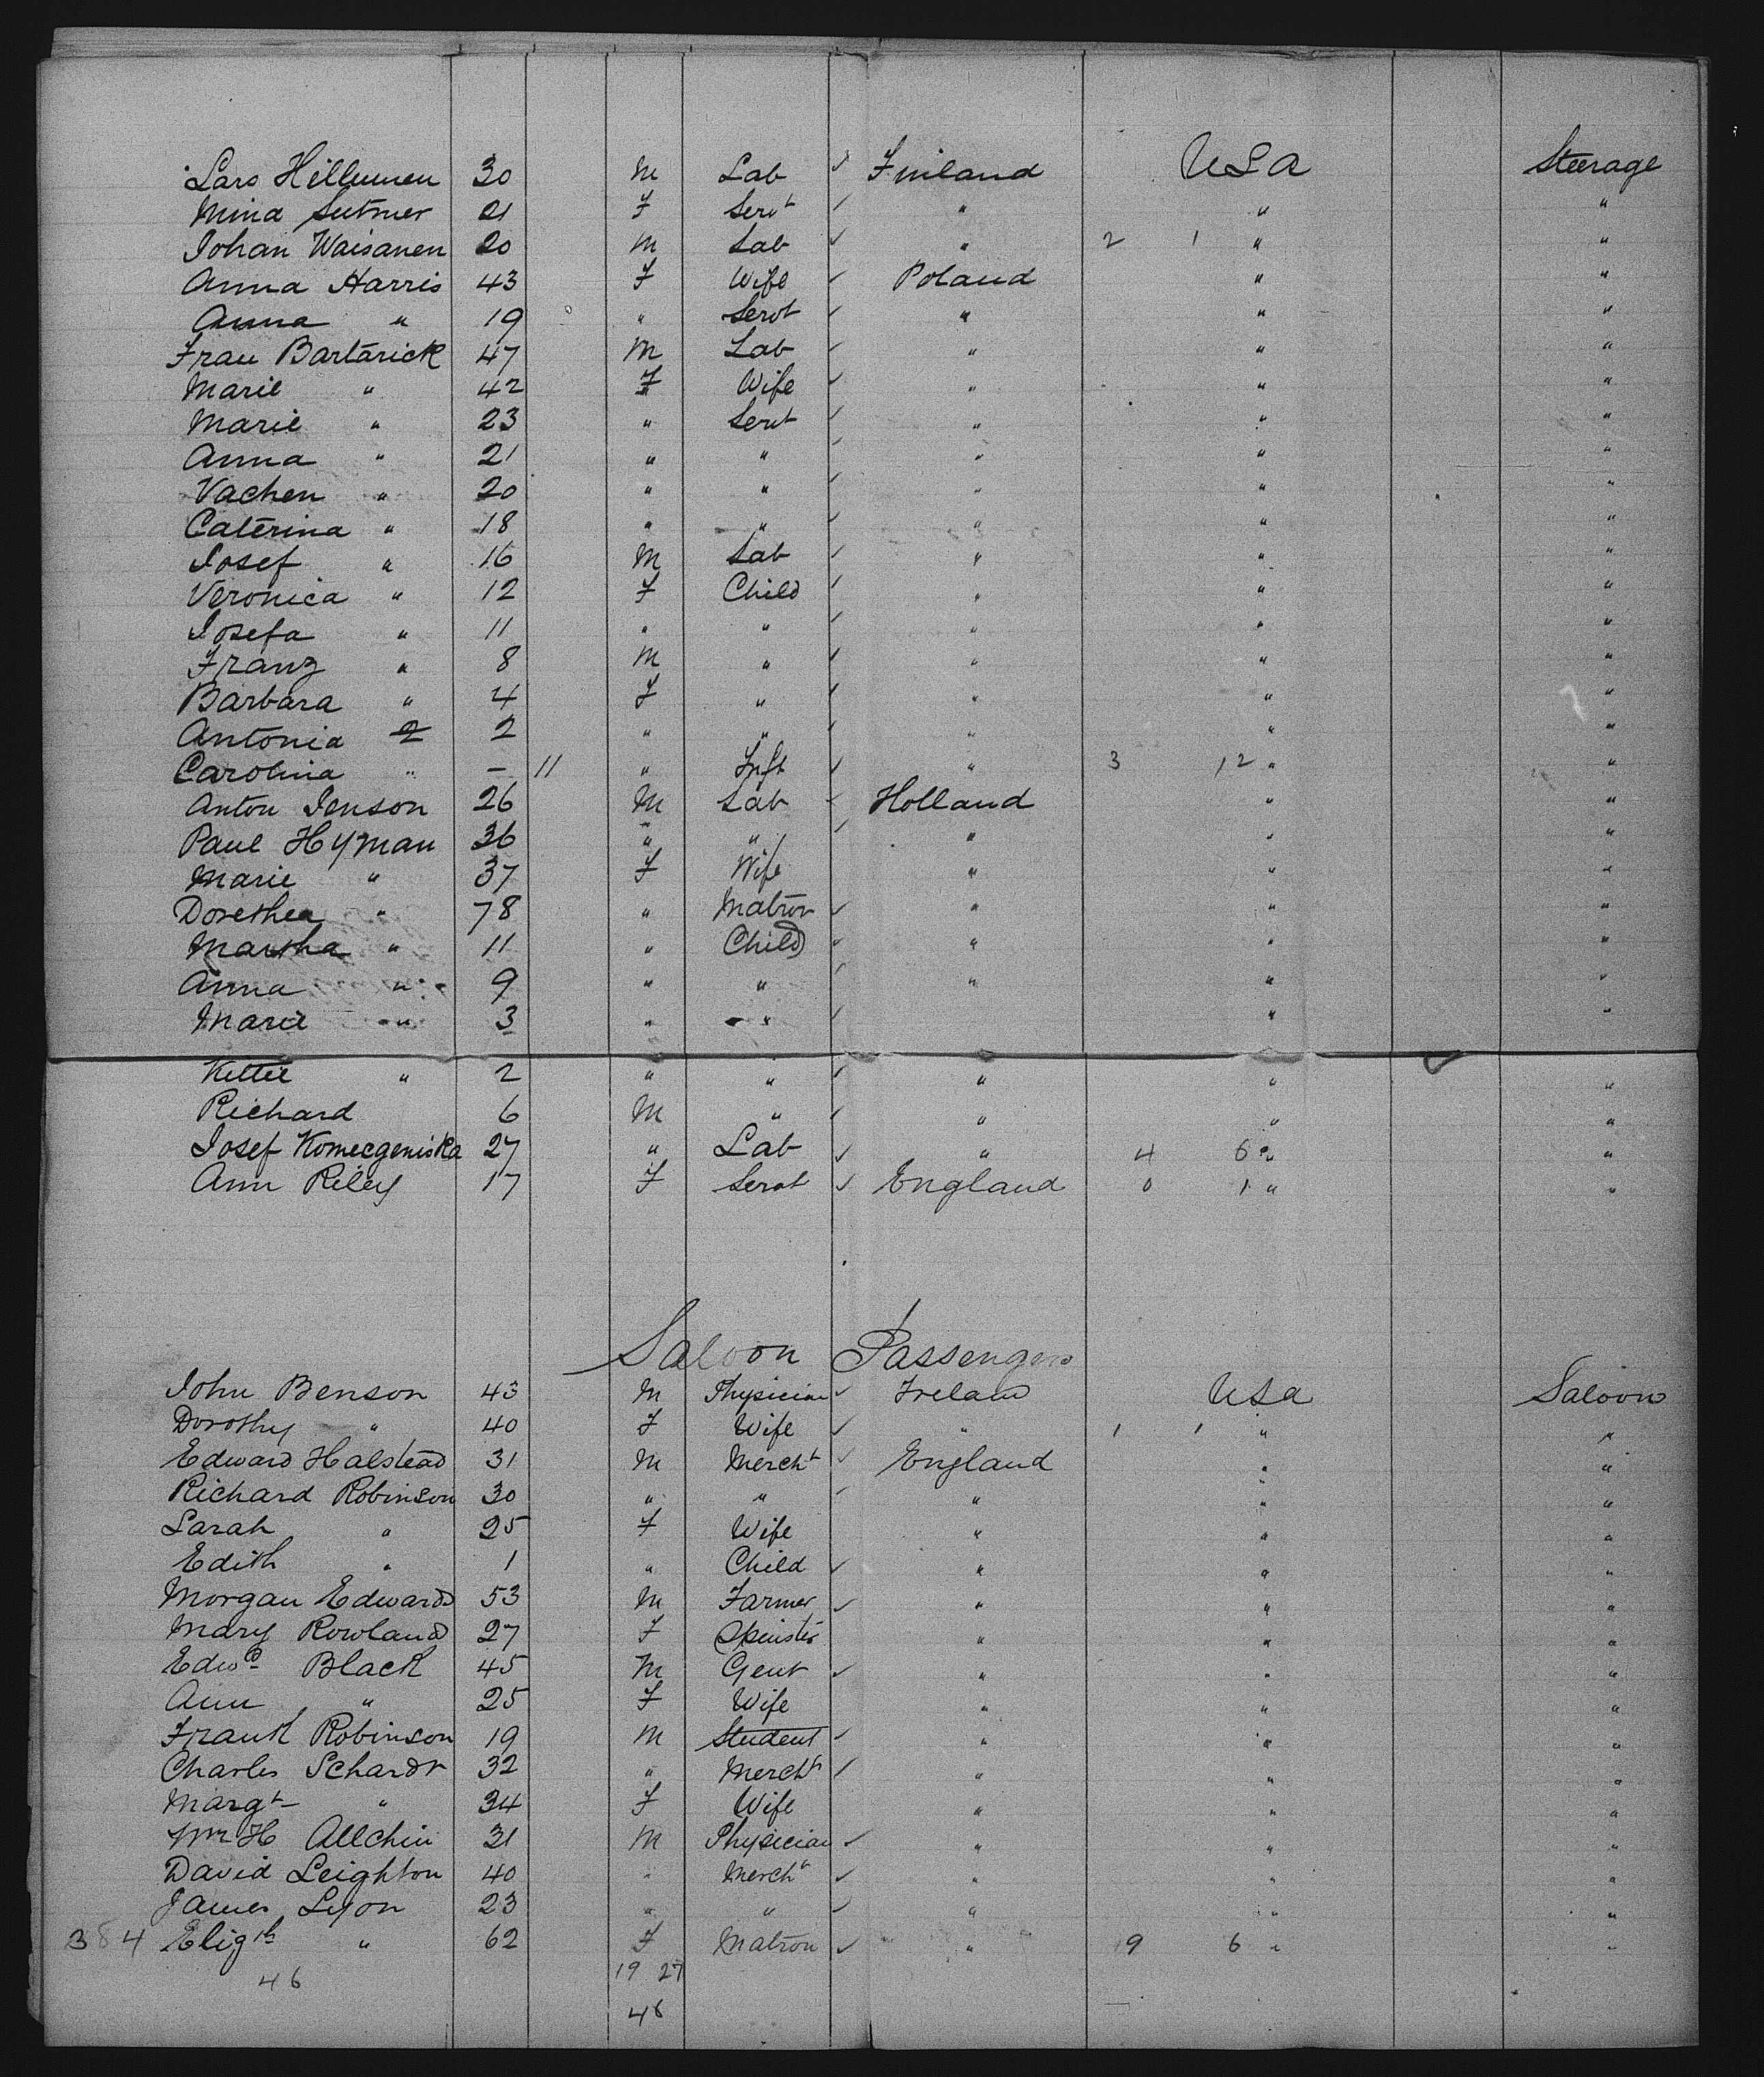 Lars Hillunen 30 M Lab ✓ Finland USA Steerage
Mina Sutner 21 F Servt ✓ " " "
Johan Waisanen 20 M Lab ✓ " 2 1 " "
Anna Harris 43 F Wife ✓ Poland " "
Anna " 19 " Servt ✓ " " "
Frau Bartarick 47 M Lab ✓ " " "
Marie " 42 F Wife ✓ " " "
Marie " 23 " Servt ✓ " " "
Anna " 21 " " ✓ " " "
Vachen " 20 " " ✓ " " "
Caterina " 18 " " ✓ " " "
Josef " 16 M Lab ✓ " " "
Veronica " 12 F Child ✓ " " "
Josefa " 11 " " ✓ " " "
Franz " 8 M " ✓ " " "
Barbara " 4 F " ✓ " " "
Antonia 2 2 " " ✓ " " "
Carolina " – 11 " Inft ✓ " 3 12 " "
Anton Jenson 26 M Lab ✓ Holland " "
Paul Hyman 36 " " ✓ " " "
Marie " 37 F Wife " " "
Dorethea " 78 " Matron ✓ " " "
Martha " 11 " Child ✓ " " "
Anna " 9 " " ✓ " " "
Marie " 3 " " ✓ " "
Kittie " 2 " " ✓ " " "
Richard 6 M " ✓ " " "
Josef Komecgeniska 27 " Lab ✓ " 4 6 " "
Ann Riley 17 F Servt ✓ England 0 1 " "
Saloon Passengers
John Benson 43 M Physician ✓ Ireland USA Saloon
Dorothy " 40 F Wife ✓ " 1 1 " "
Edward Halstead 31 M Mercht ✓ England " "
Richard Robinson 30 " " ✓ " " "
Sarah " 25 F Wife " " "
Edith " 1 " Child ✓ " " "
Morgan Edwards 53 M Farmer ✓ " " "
Mary Rowland 27 F Spinster " " "
Edwd Black 45 M Gent ✓ " " "
Ann " 25 F Wife " " "
Frank Robinson 19 M Student ✓ " " "
Charles Schardt 32 " Mercht ✓ " " "
Margt " 34 F Wife " " "
Wm H Allchin 31 M Physician ✓ " " "
David Leighton 40 " Mercht ✓ " " "
James Lyon 23 " " ✓ " " "
384 Elizth " 62 F Matron ✓ " 9 6 " "
46 19 27
46